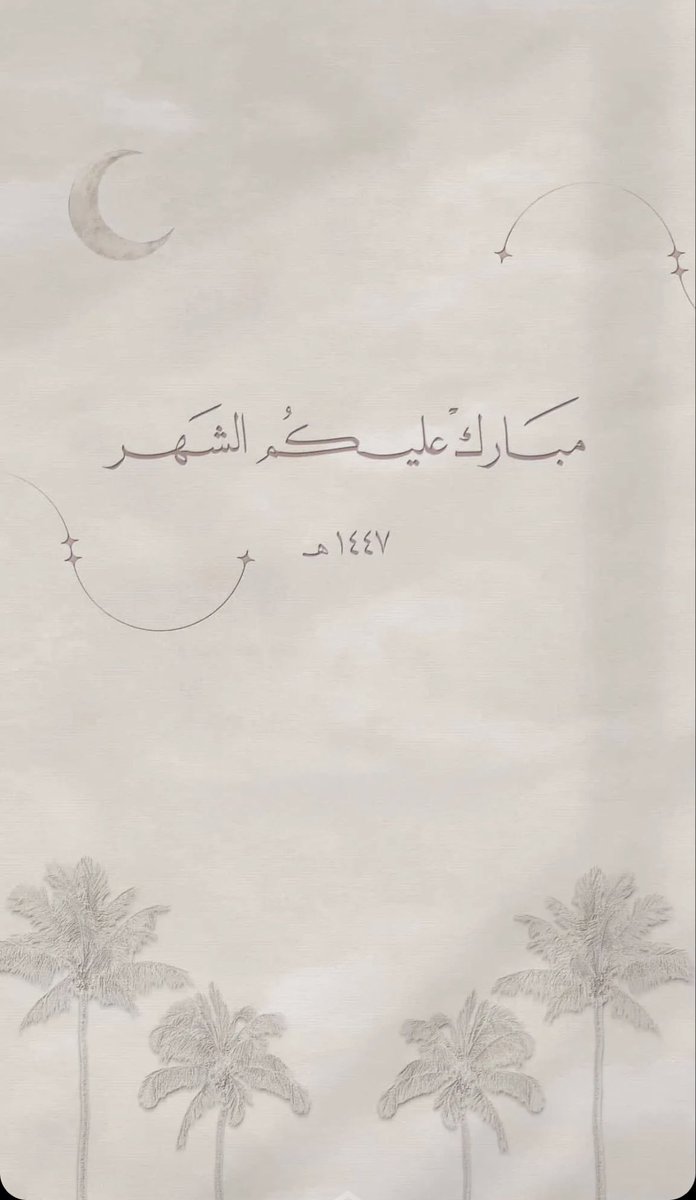 مبَارك عليكُم الشَهر
١٤٤٧ هـ